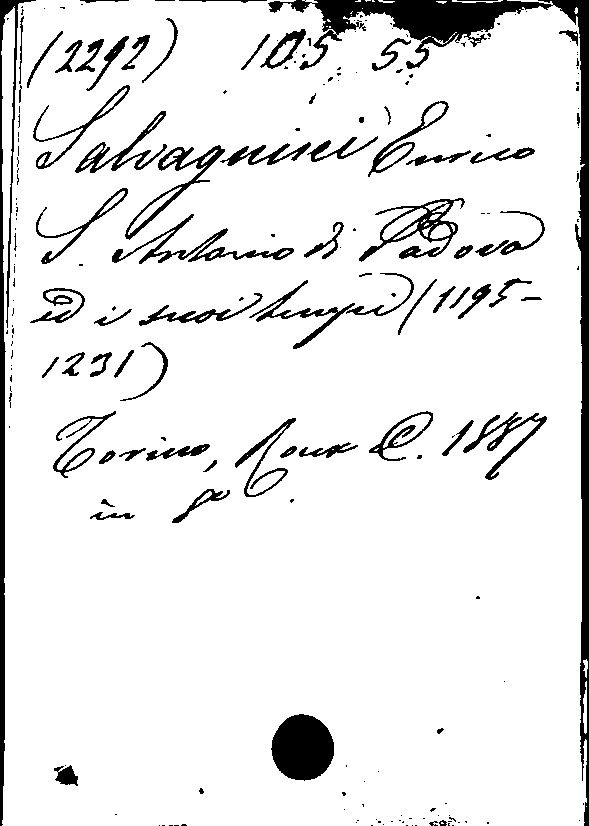 (2292) 105 55
Salvagnini Enrico
S. Antonio di Padova
ed i suoi tempi (1195-
1231)
Torino, Roux e C. 1887
in 8°.